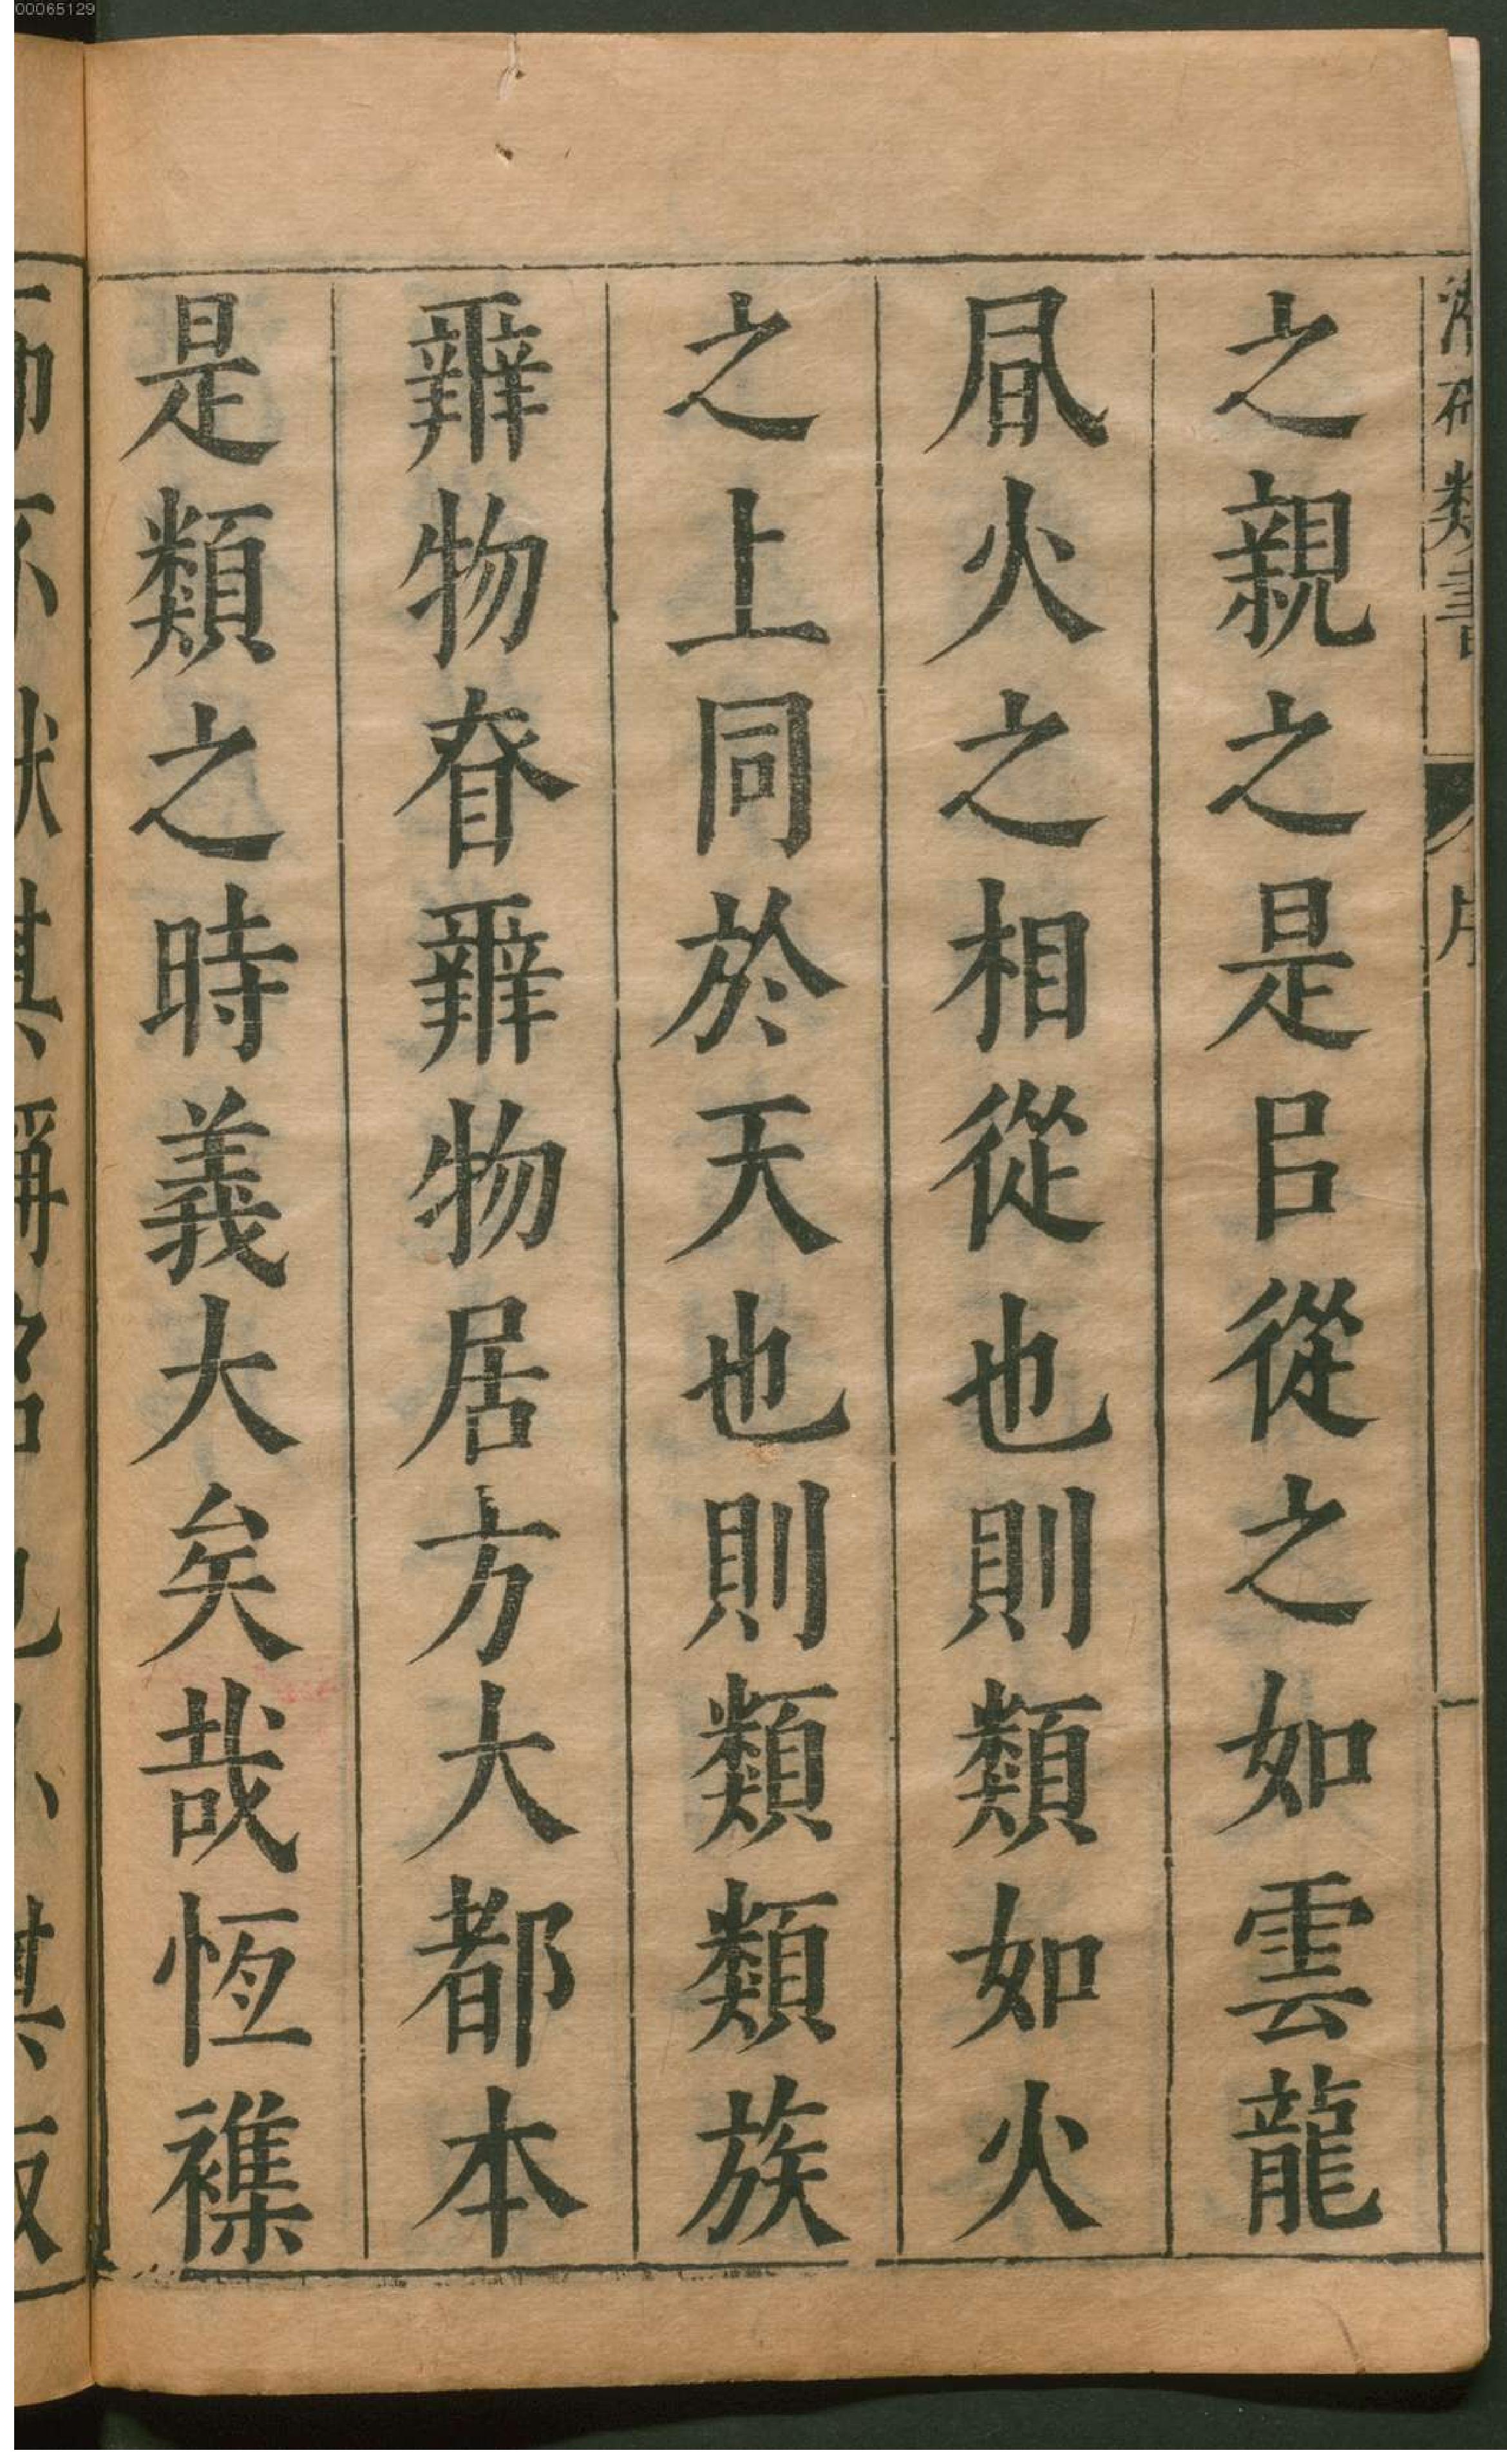 00065129
類書
序
一
之親之是㠯從之如雲龍
凬火之相從也則類如火
之上同於天也則類類族
辨物昚辨物居方大都本
是類之時義大矣哉恆襍